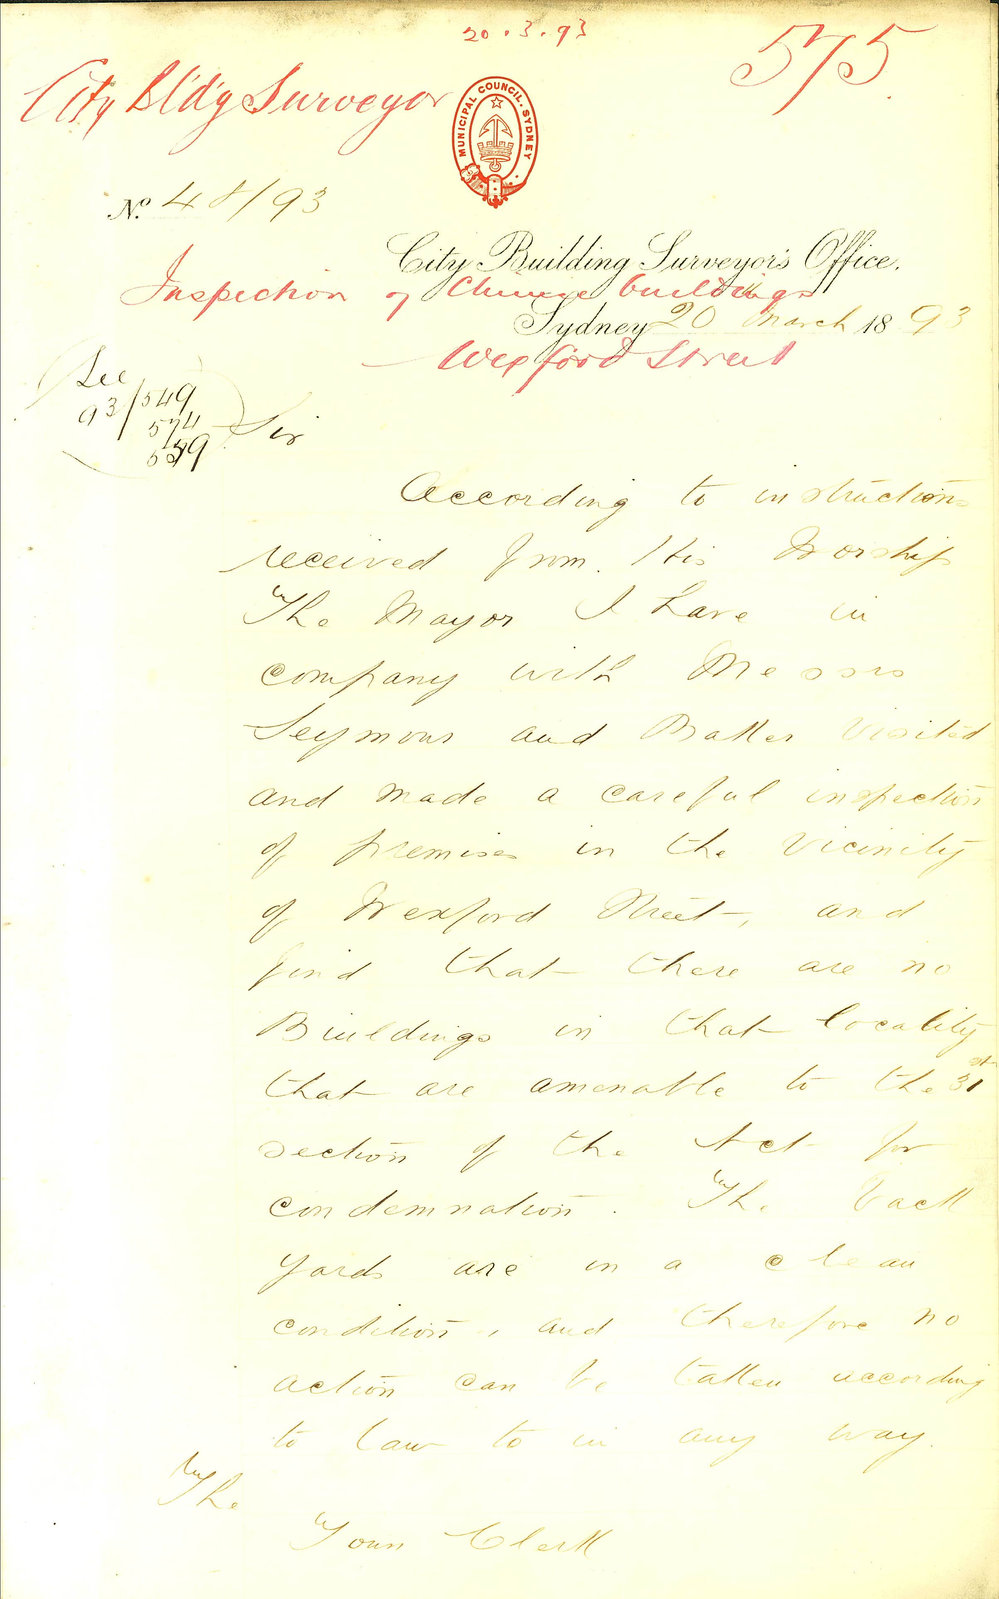 20.3.93
575
City Bldg Surveyor
MUNICIPAL COUNCIL. SYDNEY
No. 48/93
City Building Surveyor's Office.
Inspection of Chinese buildings
Sydney 20th March 1893
Wexford Street
See
93/549
574
559
Sir
According to instructions
received from His Worship
The Mayor I have in
company with Messrs
Seymour and Baker visited
and made a careful inspection
of premises in the vicinity
of Wexford Street, and
find that there are no
Buildings in that locality
that are amenable to the 31st
section of the Act for
condemnation. The back
yards are in a clean
condition, and therefore no
action can be taken according
to law to in any way.
The
Town Clerk